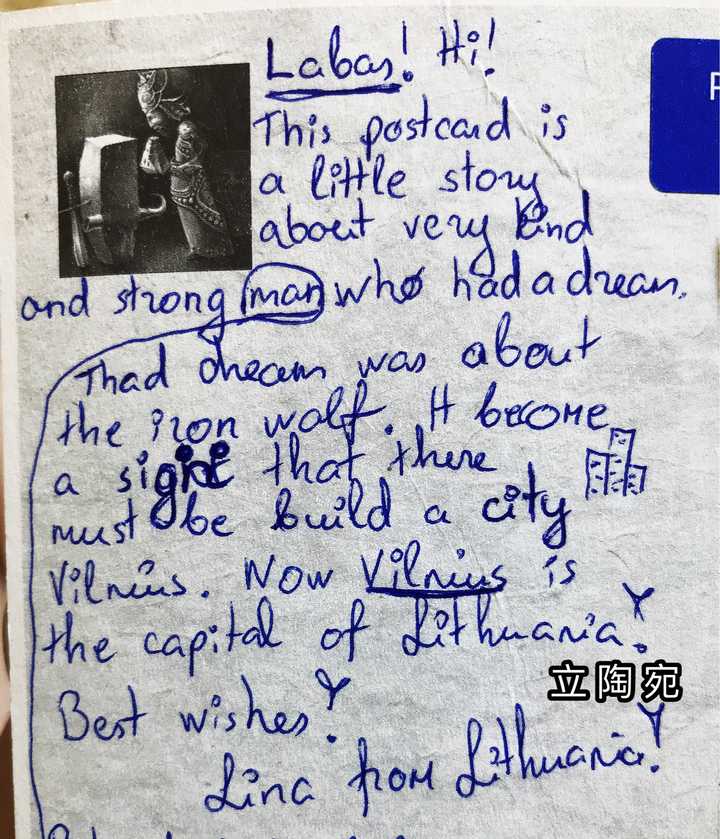 Labas! Hi!
This postcard is
a little story
about very kind
and strong man who had a dream.
Thad dream was about
the iron wolf. It become
a sight that there
must be build a city
Vilnius. Now Vilnius is
the capital of Lithuania!
立陶宛
Best wishes!
Lina from Lithuania!